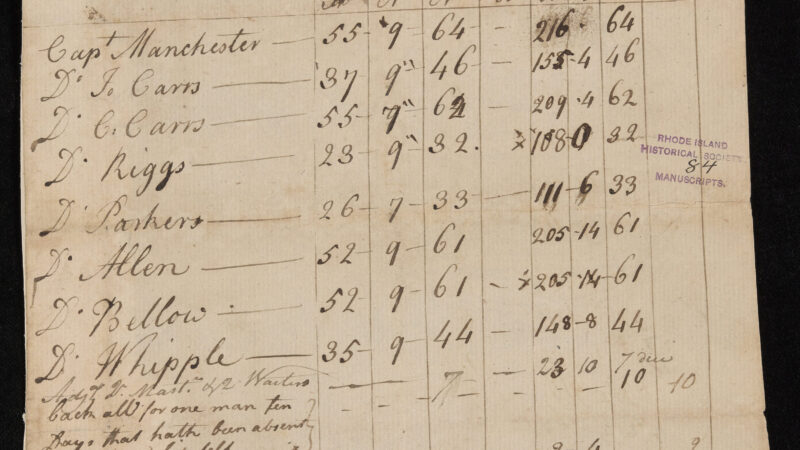 Capt Manchester — 55 - 9 - 64 - 216 - 64
Do Jo Carrs — 37 9" 46 - 155-4 46
Do C. Carrs — 55 - 7" 62 - 209-4 62
Do Riggs — 23 - 9" 32. 108-0 32
RHODE ISLAND
HISTORICAL SOCIETY
84
MANUSCRIPTS.
Do Parkers — 26 - 7 - 33 - 111-6 33
Do Allen — 52 - 9 - 61 - 205-14 61
Do Bellow — 52 - 9 - 61 - 205-14 61
Do Whipple — 35 - 9 - 44 - 148-8 44
Waiters — 7 - 23 10 7 due
back all for one man ten 10 10
Days that hath been absent